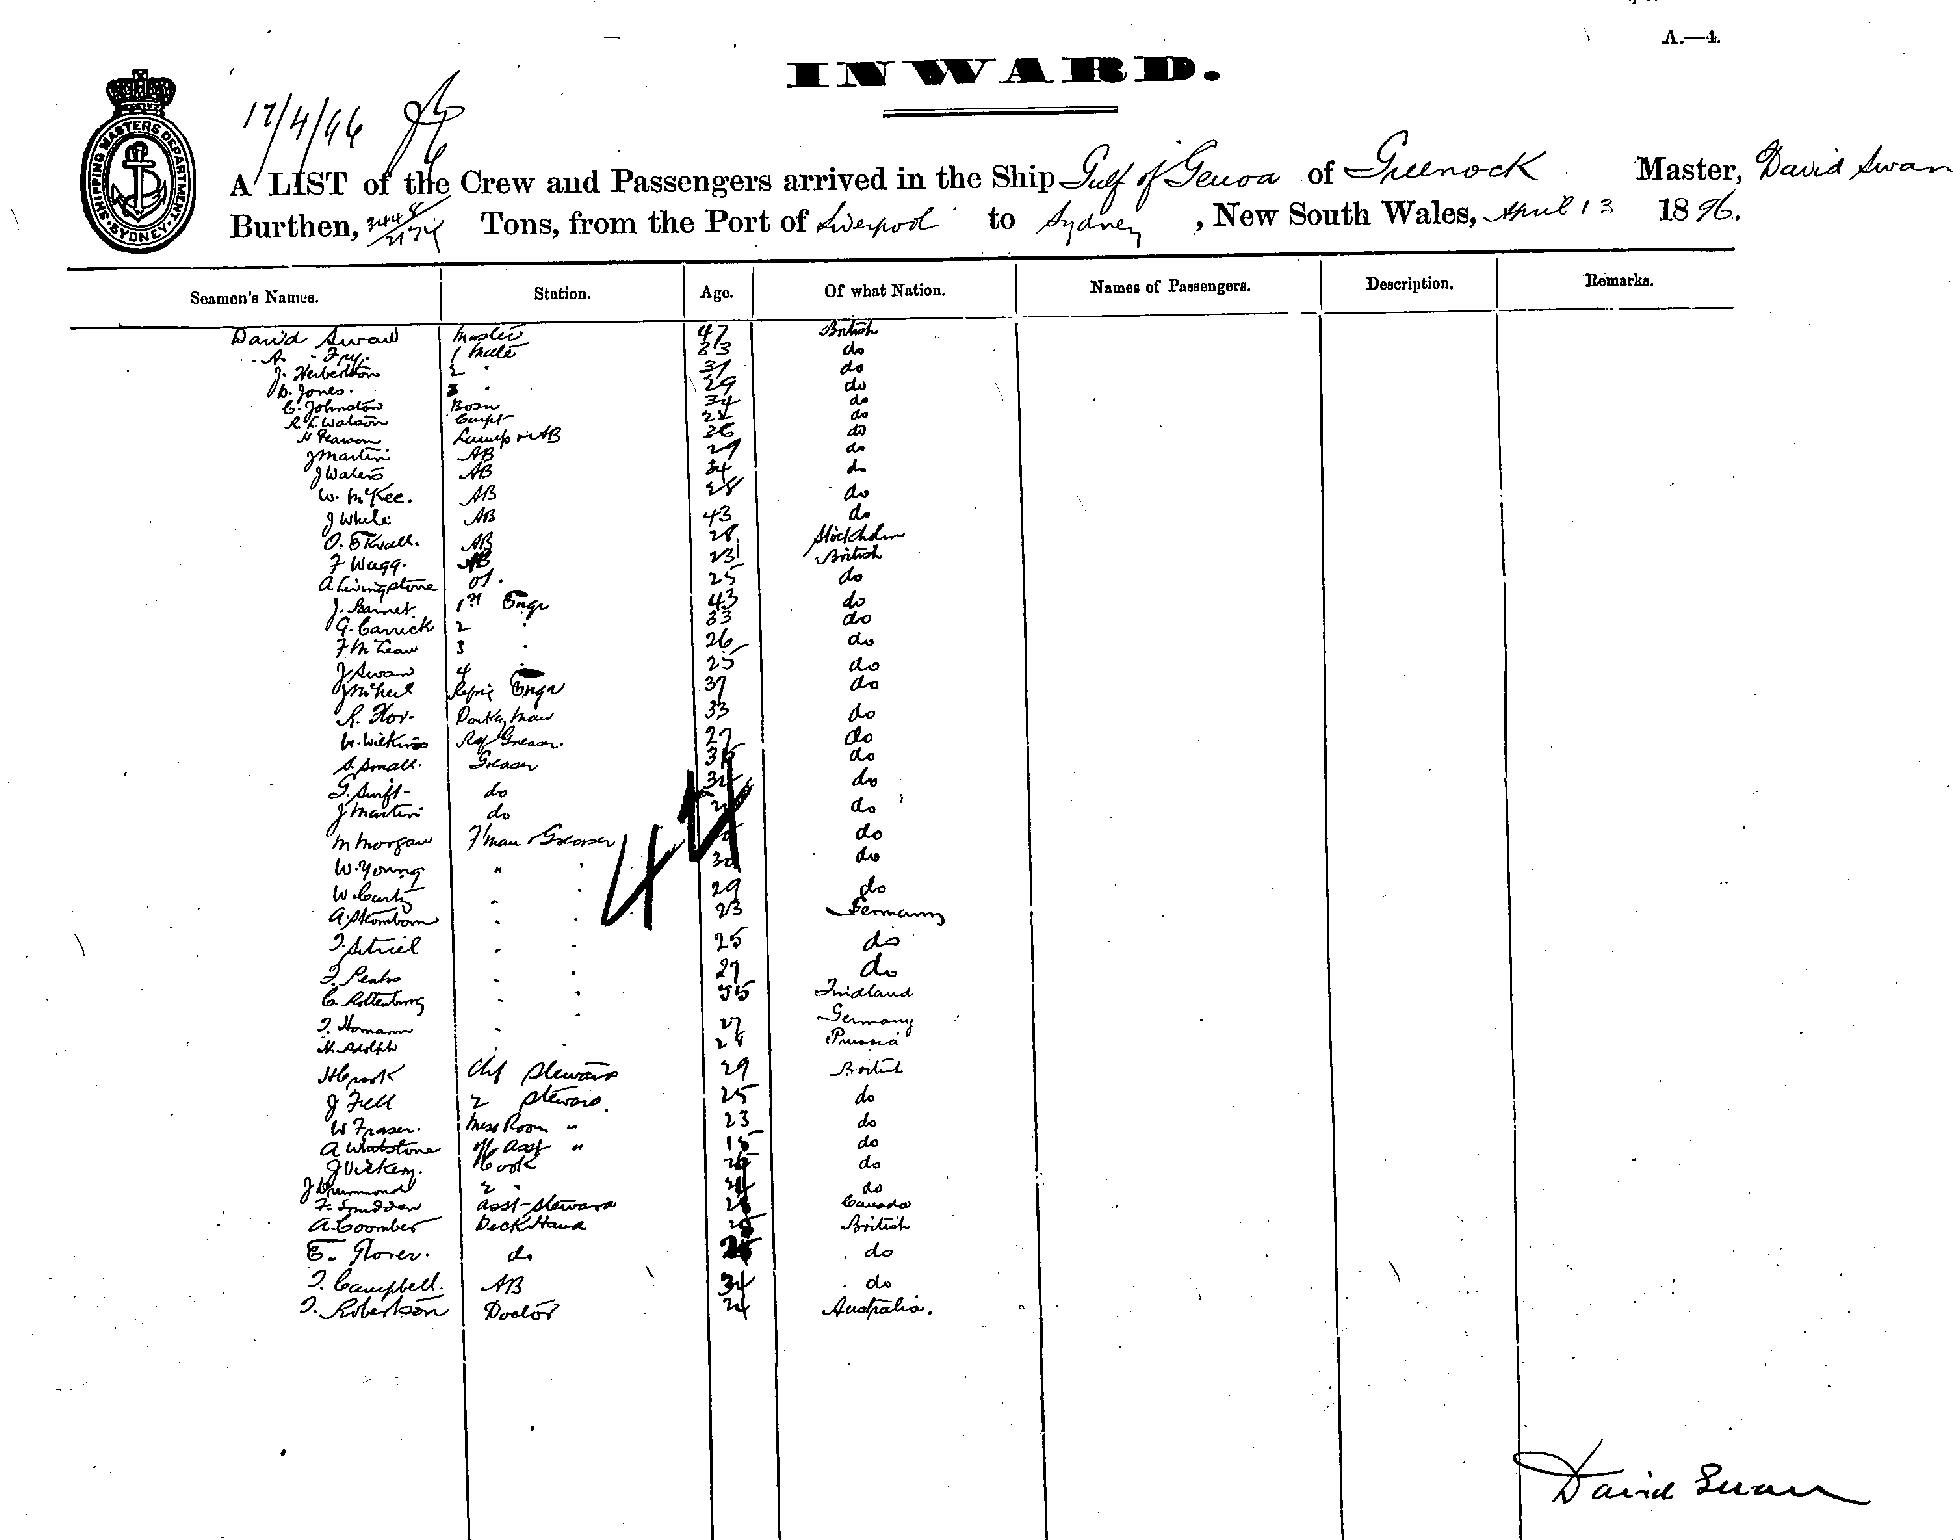 A.—4.
INWARD.
17/4/96
SHIPPING MASTERS DEPARTMENT SYDNEY
A LIST of the Crew and Passengers arrived in the Ship Gulf of Genoa of Greenock Master, David Swan
Burthen, Tons, from the Port of Liverpool to Sydney, New South Wales, April 13 1896.
Seamen's Names. Station. Age. Of what Nation. Names of Passengers. Description. Remarks.
David Swan Master 47 British
A. Fry. 1 Mate 33 do
J. Herbertson 2 " 37 do
D. Jones. 3 " 29 do
C. Johnston Bosn 34 do
R. L. Watson Carpt 22 do
H Pearson Lamps & AB 36 do
J Martin AB 29 do
J Waters AB 34 do
W. McKee. AB 28 do
J White AB 43 do
O. Ekvall. AB 28 Stockholm
F Wagg. AB 23 British
A Livingstone OS. 25 do
J. Barnet 1st Engr 43 do
G. Carrick 2 " 33 do
F McLean 3 " 26 do
J Swan 4 " 25 do
J Engr 37 do
R. Donkeyman 33 do
W. Wilkins Ref Greaser. 27 do
S. Small. Greaser do
G. Swift do do
J Martin do do
M Morgan F'man & Greaser do
W. Young " " 30 do
W. Curtz " " 29 do
A. " " 23 Germany
" " 25 do
" " 27 do
C. Rottenburg " " 35 Finland
J. Homann " " 27 Germany
H. Adolph " " Prussia
H Crook Chf Steward 29 British
J Fell 2 Steward. 25 do
W Fraser. Mess Room " 23 do
A Whetstone Asst " do
J Vickery. Cook do
J Drummond 2 " do
F. Asst Steward Canada
A. Coomber Deck Hand British
E. Glover. do do
J. Campbell. AB 34 do
J. Robertson Doctor 24 Australia.
44
David Swan